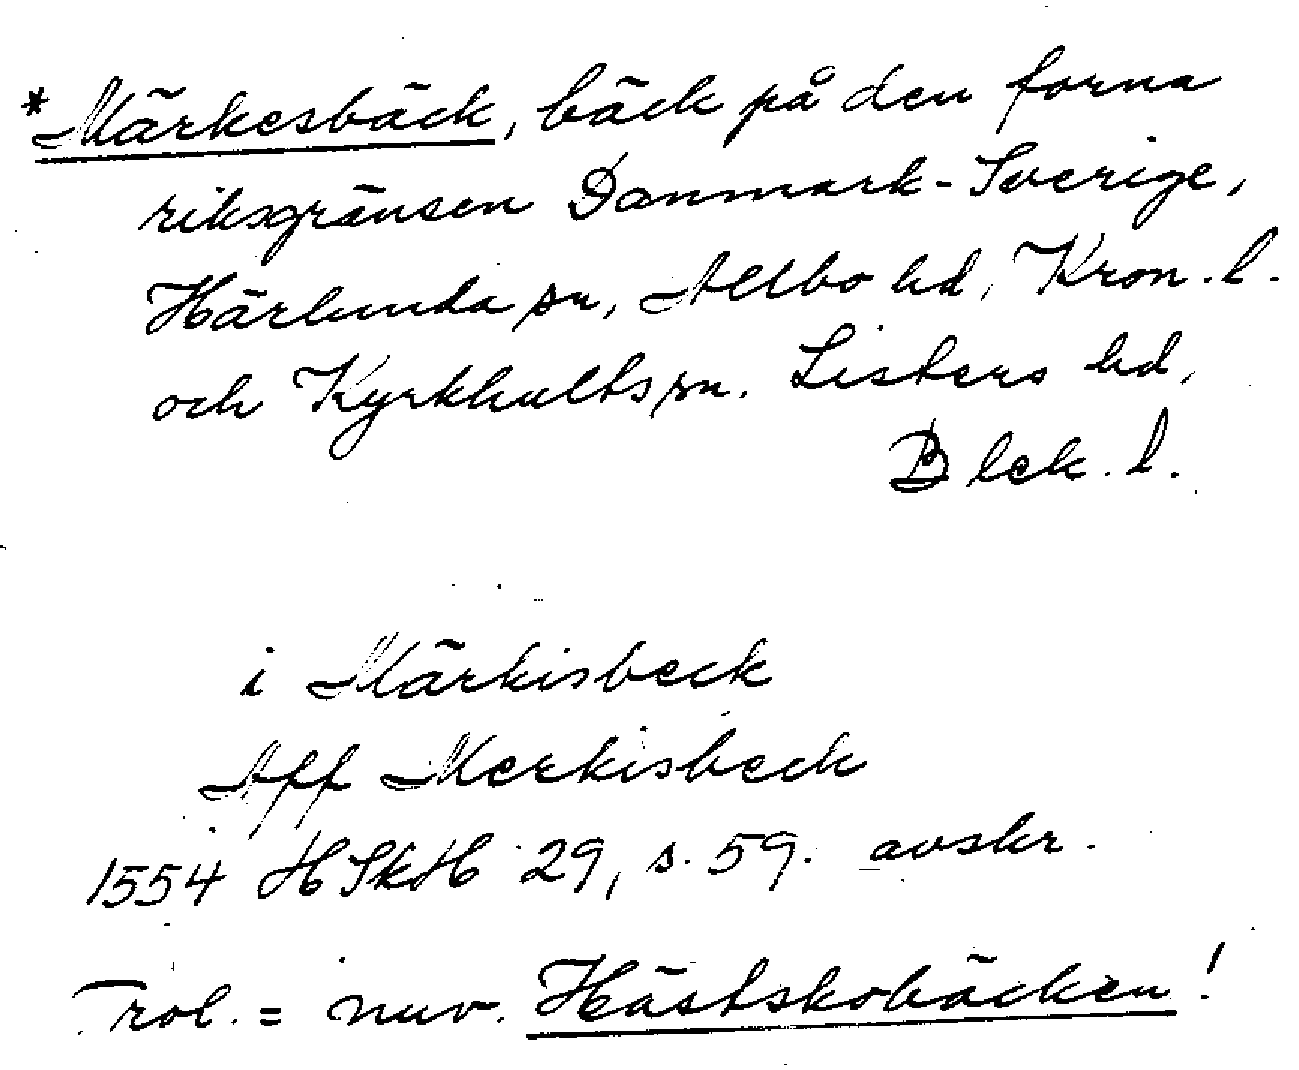 *Märkesbäck, bäck på den forna
riksgränsen Danmark-Sverige,
Härlunda sn, Allbo hd, Kron. l.
och Kyrkhults sn. Listers hd,
Blek. l.
i Märkisbeck
Aff Merkisbeck
1554 HSkH 29, s. 59. avskr.
Trol. = nuv. Hästskobäcken!